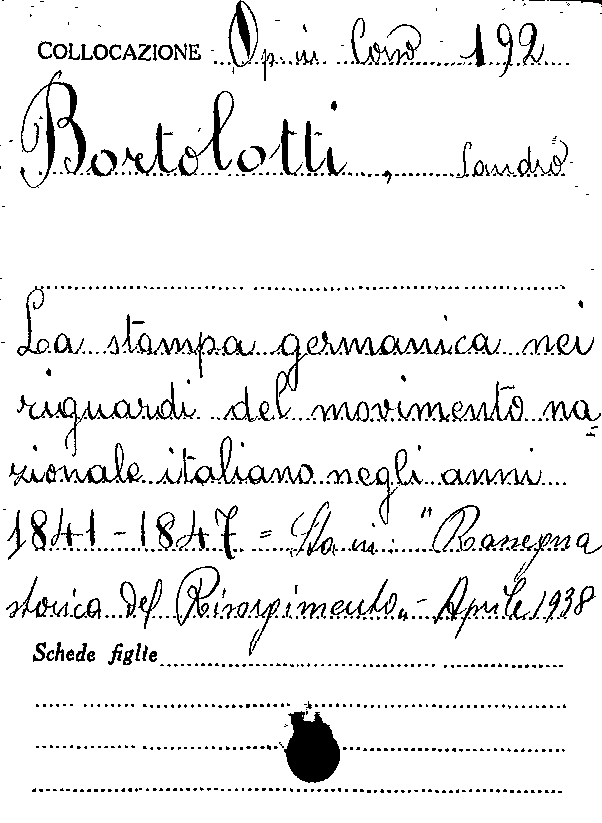 COLLOCAZIONE Op. in Cons 192
Bortolotti, Sandro
La stampa germanica nei
riguardi del movimento na=
zionale italiano negli anni
1841-1847 = Sta in: "Rassegna
storica del Risorgimento„ - Aprile 1938
Schede figlie